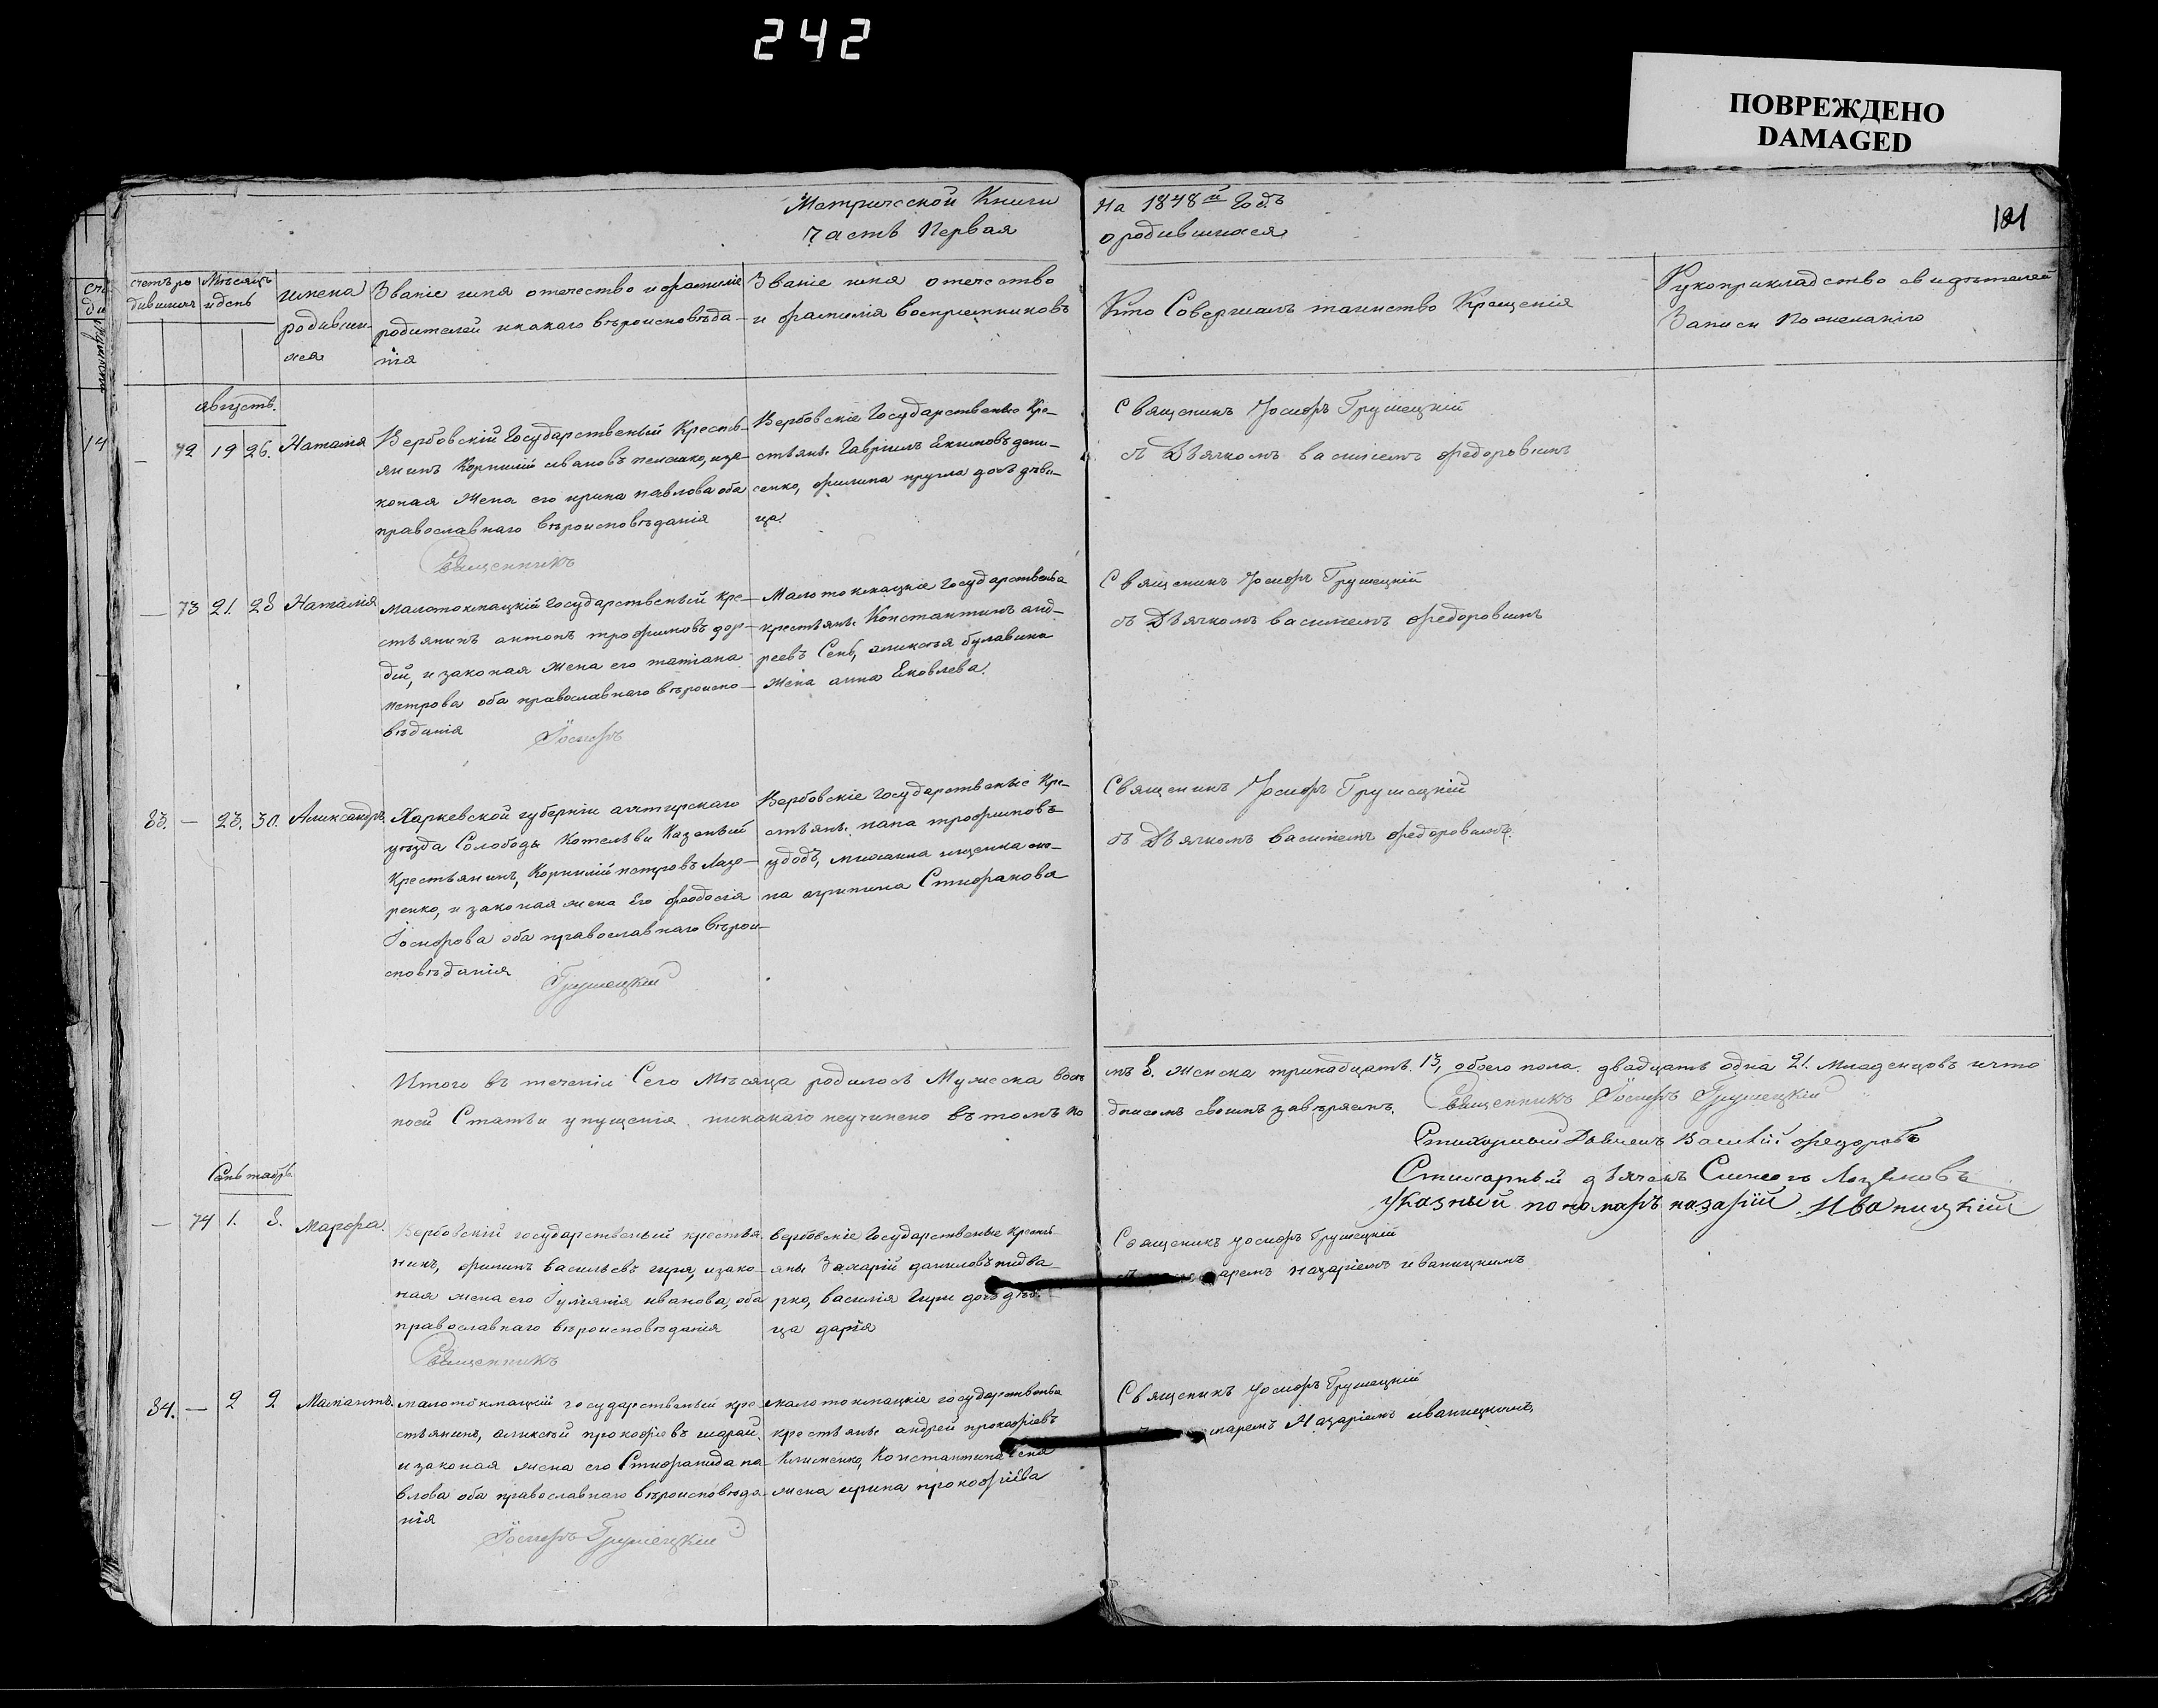 242
ПОВРЕЖДЕНО
DAMAGED
Метрической Книги
часть Первая
На 1848й Годъ
о родившихся
181
счетъ ро
дившихъ
Мѣсяцъ
и день
имена
родивши-
хся
Званіе имя отечество и фамиліе
родителей и какаго вѣроисповѣда-
нія
Званіе имя отечество
и фамилія воспріемниковъ
Кто Совершалъ таинство Крещенія
Рукоприкладство свидѣтелей
Записи По желанію
августъ.
— 72 19 26. Наталия
Вербовскій Государственый Кресть-
янинъ Корнилій ивановъ , иза-
коная Жена его ирина павлова оба
православнаго вѣроисповѣданія
Священникъ
Вербовскіе Государственые Кре-
стьяне Гавріилъ Екимовъ дени-
сенко, филипа кругла дочь дѣви-
ца.
Священикъ Иосифъ Грушецкій
съ Дьячкомъ василиемъ федоровымъ
— 73 21. 28 Наталия
малотокмацкій государственый кре-
стьянинъ антонъ трофимовъ гор-
дій, и законая жена его татіана
петрова оба православнаго вѣроиспо-
вѣданія
Іосифъ
Малотокмацкіе государственые
крестьяне Константинъ анд-
реевъ Сень, аликсѣя булавина
жена анна Ековлева.
Священикъ Иосифъ Грушецкій
съ Дьячкомъ василиемъ федоровымъ
83. — 23. 30. Александръ.
Харкевской губерніи ахтирскаго
уѣзда Солободы Котельвы Казеный
Крестьянинъ, Корнилій петровъ Лазо-
ренко, и законая жена Его феодосія
Іосифова оба православнаго вѣрои-
сповѣданія
Грушецкій
Вербовскіе государственые Кре-
стьяне, папа трофимовъ
удодъ, михаила ищенка же-
на агрипина Стифанова
Священикъ Иосифъ Грушецкій
съ Дьячкомъ василиемъ федоровымъ.
Итого въ теченіи Сего Мѣсяца родилось Мужеска вось
мъ 8. женска тринадцать 13, обоего пола двадцать одна 21. младенцовъ и что
посей Статьи упущенія никакаго неучинено въ томъ по
дписомъ своимъ завѣряемъ. Священникъ Іосифъ Грушецкій
Стихарный Дьячекъ Василій федоровъ
Стихарный дьячекъ Симеонъ
Указный пономаръ назарій Иваницкій
Сентябрь
— 74 1. 8. Марфа.
Вербовскій государственый крестья
нинъ, филипъ васильевъ гиря, изако-
ная жена его Іулианія иванова, оба
православнаго вѣроисповѣданія
Священникъ
вербовскіе Государственые Кресть
яне Захарій даниловъ
рко, василія Гири дочъ дѣв
ца дарія
Священикъ иосифъ Грушецкій
съ аремъ назаріемъ иваницкимъ
84. — 2 2
малотокмацкій государственый кре
стьянинъ, аликсѣй прокофіевъ шарай,
и законая жена его Стифанида па
влова оба православнаго вѣроисповѣда
нія
Іосифъ Грушецкій
малотокмацкіе государственые
крестьяне андрей прокофіевъ
Клименко, Константина Сеня
жена ирина прокофіева
Священикъ Иосифъ Грушецкій
маремъ Назаріемъ иваницкимъ